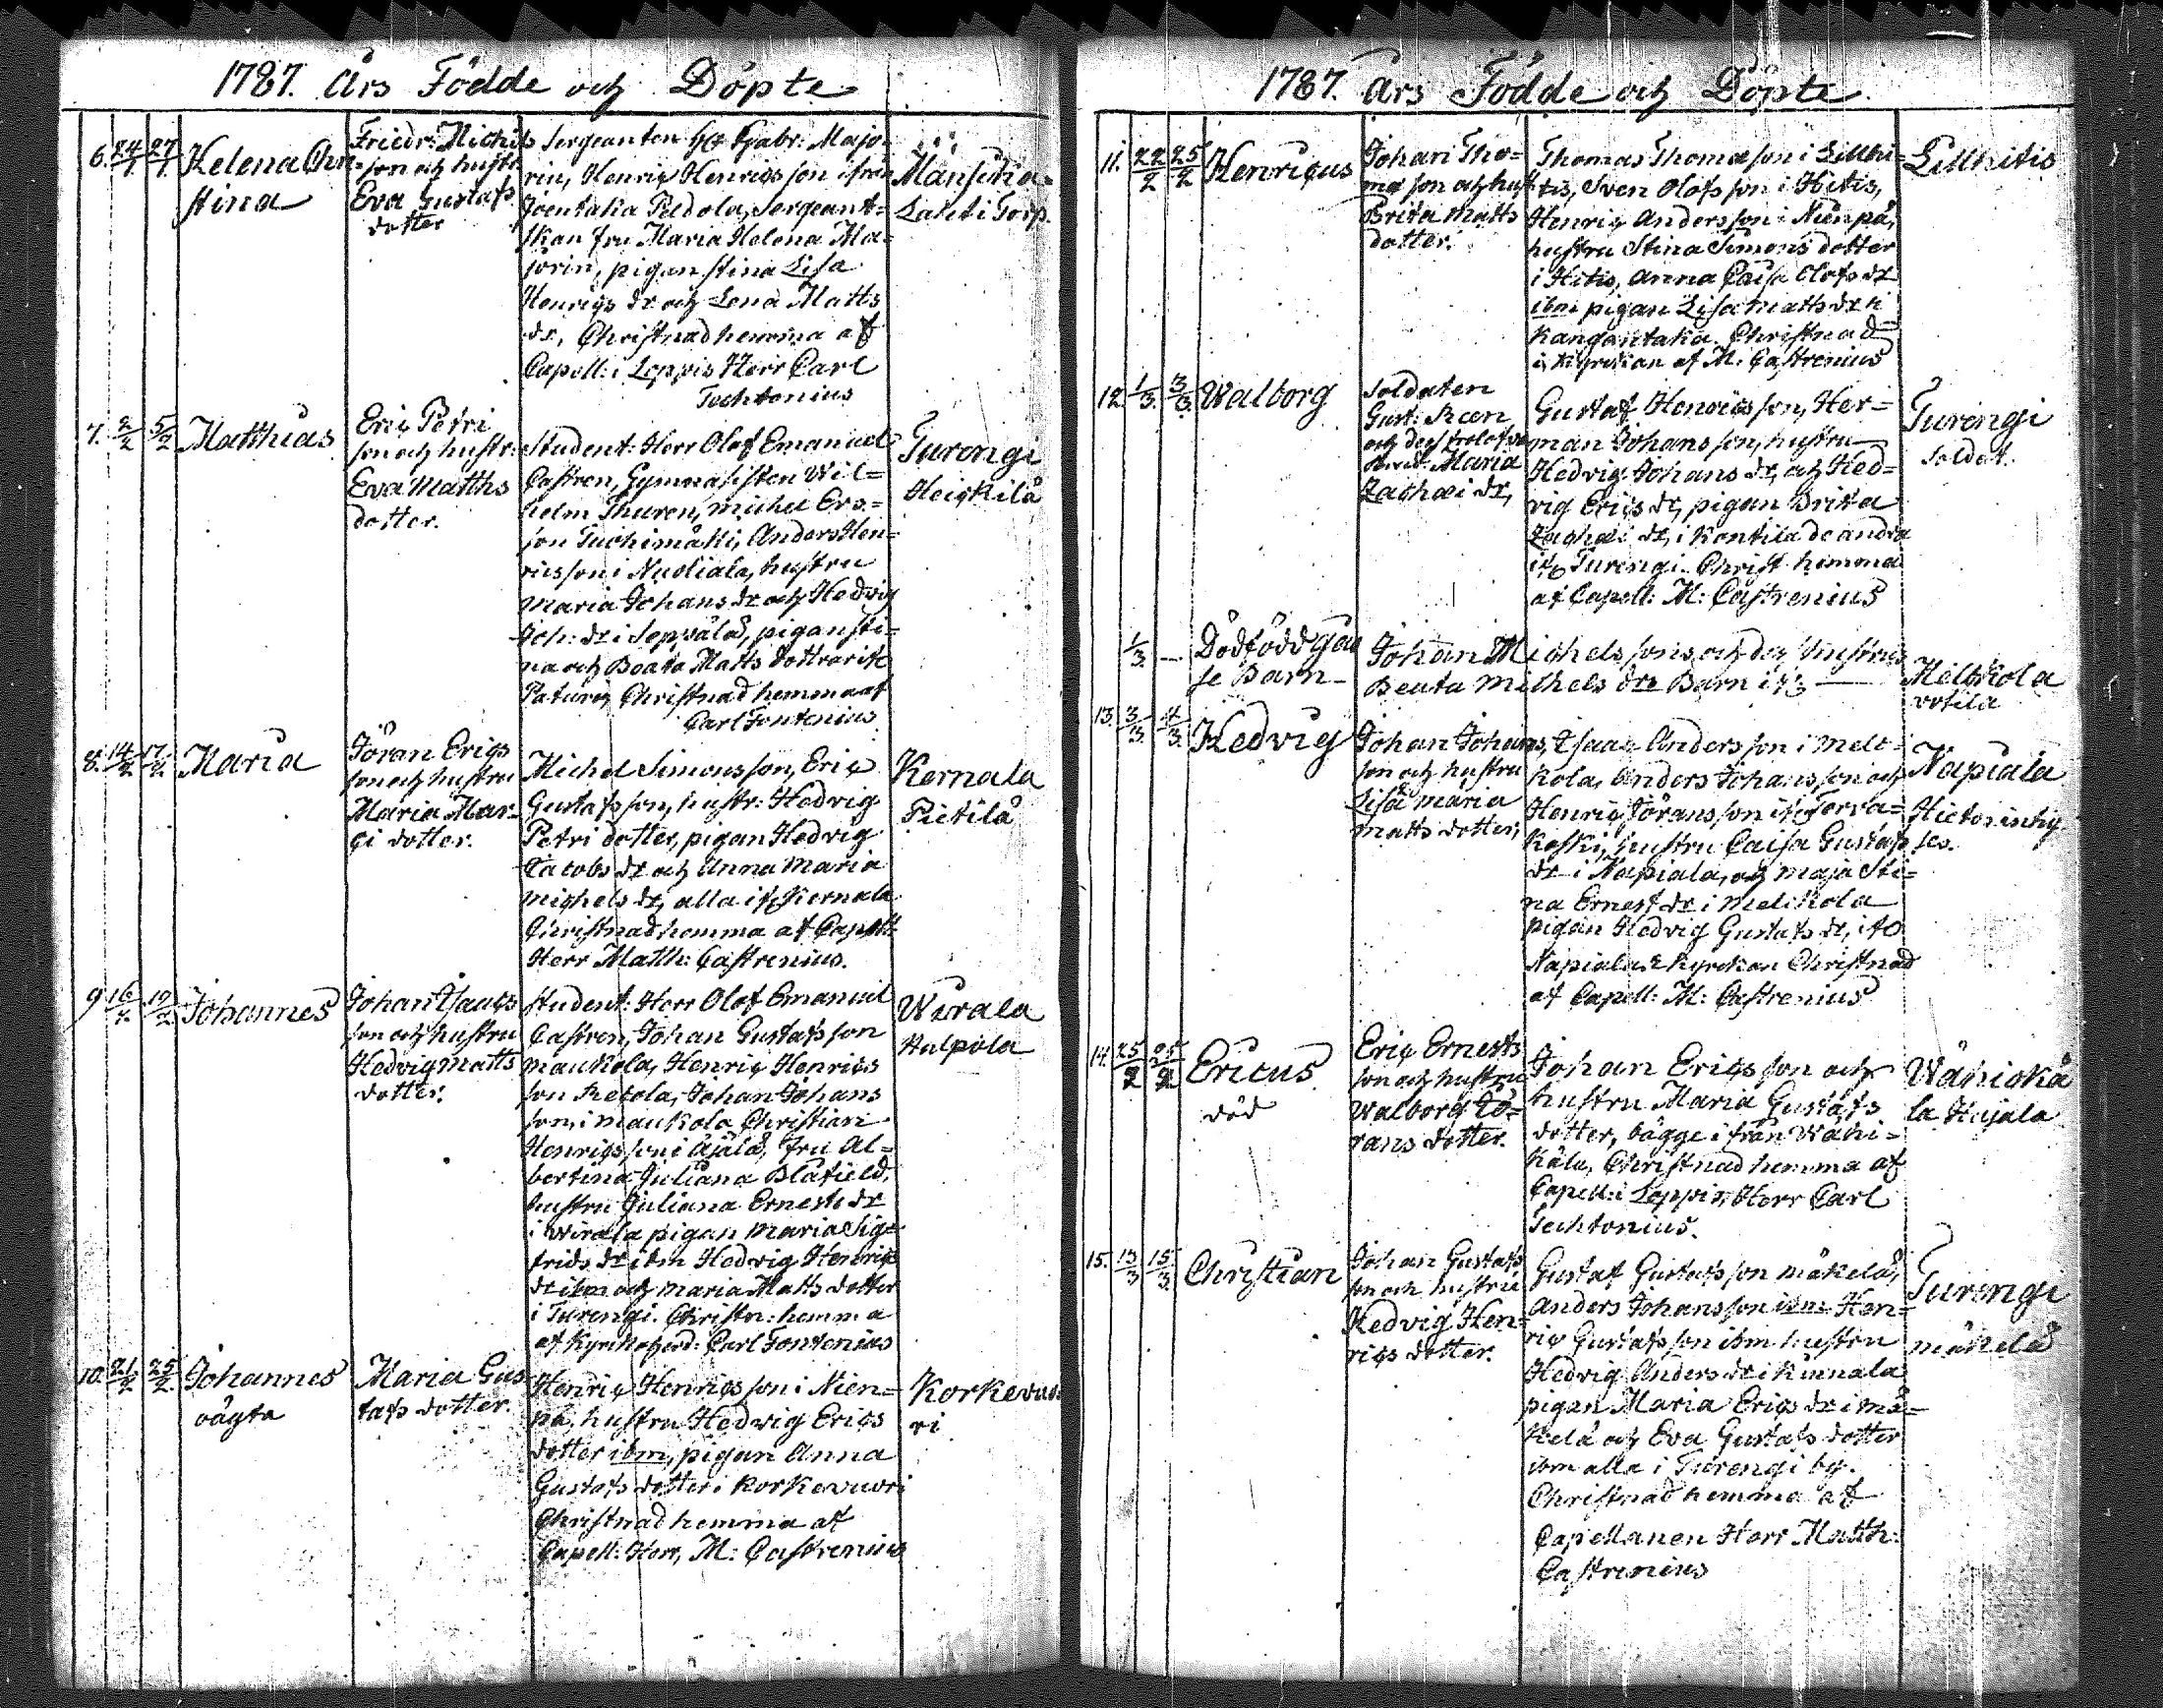 1787. Års Födde och Döpte
6. 24/1 27/1 Helena Chri=
stina
Friedr: Michels
son och hustr
Eva Gustafs
dotter
Sergeanten Hr Gabr: Majo=
rin, Henriç Henriçs son ifrån
Joentaka Peldola, Sergeant=
skan fru Maria Helena Ma=
jorin, pigan Stina Lisa
Henriçs dr och Lena Matts
dr, Christnad hemma af
Capell: i Loppis Herr Carl
Techtonius
Mänsikia=
Lahti Torp.
7. 2/2 5/2 Matthias
Eriç Petri
son och hustr:
Eva Matths
dotter.
Student: Herr Olof Emanuel
Castren, Gymnasisten Wil=
helm Thuren, Michel Ers=
son Tuohimäki, Anders Hen=
ricsson i Nuoliala, hustru
Maria Johans dr och Hedvig
Joh: dr i Seppälä, pigan Sti=
na och Beata Matts dottrar
Christnad hemma af
Carl Fontenius
Turengi
Heickilä
8. 14/2 17/2 Maria
Jöran Eriçs
son och hustru
Maria Mar=
çi dotter.
Michel Simonsson, Eriç
Gustafsson, hustr: Hedvig
Petri dotter, pigan Hedvig
Jacobs dr och Anna Maria
Michels dr, alla ifr Kernala
Christnad hemma af Capell:
Herr Matth: Castrenius.
Kernala
Pietilä
9. 16/2 19/2 Johannes
Johan Isaacs
son och hustru
Hedvig Matts
dotter.
Student: Herr Olof Emanuel
Castren, Johan Gustafsson
Maukola, Henriç Henriçs
son Retola, Johan Johans
son i Maukola Christian
Henriçs son i Äjälä, fru Al=
bertina Juliana Blåfield,
hustru Juliana Ernests dr
i Wirala pigan Maria Sig=
frids dr ibm Hedvig Henriçs
dr ibm och Maria Matts dotter
i Turengi. Christn: hemma
af Carl Fontenius
Wirala
Kulpula
10. 21/2 25/2 Johannes
oägta
Maria Gus
tafs dotter.
Henriç Henriçs son i Nien=
pä, hustru Hedvig Eriçs
dotter ibm, pigan Anna
Gustafs dotter i Korkevuori
Christnad hemma af
Capell: Herr, M: Castrenius
Korkevuo
ri
1787. Års Födde och Döpte
11. 22/2 25/2 Henriçus
Johan Tho=
mas son och hust
Brita Matts
dotter.
Thomas Thomasson i Lillhi=
tis, Sven Olofs son i Hitis,
Henriç Andersson i Nienpä,
hustru Stina Simons dotter
i Hitis, Anna Caisa Olofs dr
ibm pigan Lisa Matts dr i
Kangantaka. Christnad
i Kyrckan af M: Castrenius
Lillhitis
12. 1/3. 3/3. Walborg
Soldaten
Gust: Reen
Maria
Zachæi dr,
Gustaf Henriçsson, Her=
man Johans son, hustru
Hedvig Johans dr, och Hed=
vig Eriçs dr, pigan Brita
Zachæi dr, i Kontila de andra
ifr Turengi. Christ. hemma
af Capell: M: Castrenius
Turengi
Soldat.
1/3. — Dödfödd gås
se Barn
Johan Michels sons och des hustrus
Beata Michels drs Barn ifr
Melckola
13. 3/3. 4/3. Hedvig
Johan Johans
son och hustru
Lisa Maria
Matts dotter,
Isaac Andersson i Melc=
kola, Anders Johansson och
Henriç Jöransson ifr Terva=
koski, hustru Caisa Gustafs
dr i Napiala, och Maja Sti=
na Ernest dr i Melckola
pigan Hedvig Gustafs dr, ifr
Napiala i kyrckan Christnad
af Capell: M: Castrenius
Napiala
14. 25/2 25/2 Ericus
död
Eriç Ernests
son och hustru
Walborg Jö=
rans dotter.
Johan Eriçs son och
hustru Maria Gustafs
dotter, bägge ifrån Wähi=
kälä, Christnad hemma af
Capell: i Loppis, Herr Carl
Techtonius.
Wähickä
la Hujala
15. 13/3 15/3 Christian
Johan Gustafs
son och hustru
Hedvig Hen=
riçs dotter.
Gustaf Gustafsson Mäkelä,
Anders Johansson ibm Hen=
riç Gustafs son ibm hustru
Hedvig Anders dr i Kinnala
pigan Maria Eriçs dr i Mä=
kelä och Eva Gustafs dotter
ibm alla i Turengi by.
Christnad hemma af
Capellanen Herr Matth:
Castrenius
Turengi
mäkelä